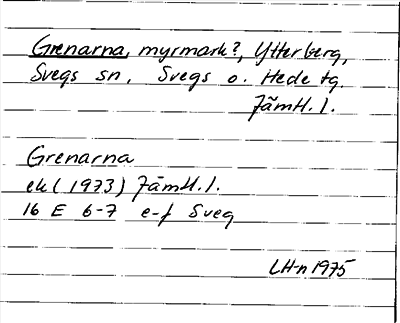 Grenarna, myrmark?, Ytterberg,
Svegs sn, Svegs o. Hede tg.
Jämtl. l.
Grenarna
ek (1973) Jämtl. l.
16 E 6-7 e-f Sveg
LH-n 1975